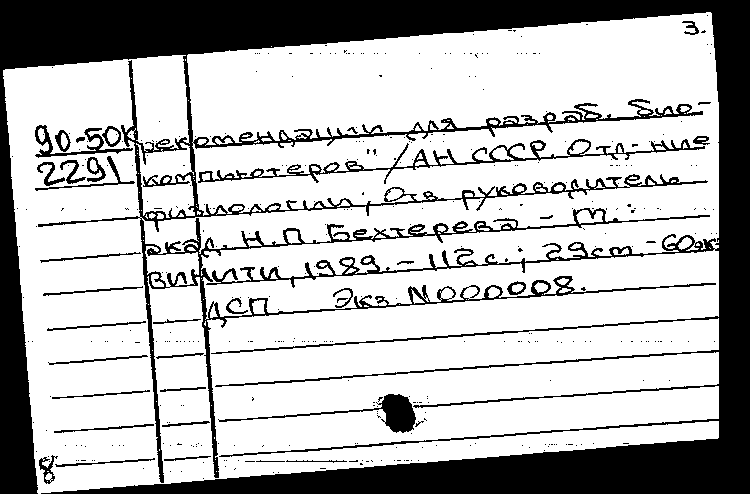 3.
90-50к рекомендации для разраб. био-
2291 компьютеров" / АН СССР. Отд-ние
физиологии; Отв. руководитель
акад. Н.П. Бехтерева - М.:
ВИНИТИ, 1989. - 112 с.; 29 cm. - 60 экз
ДСП. Экз. N000008.
8